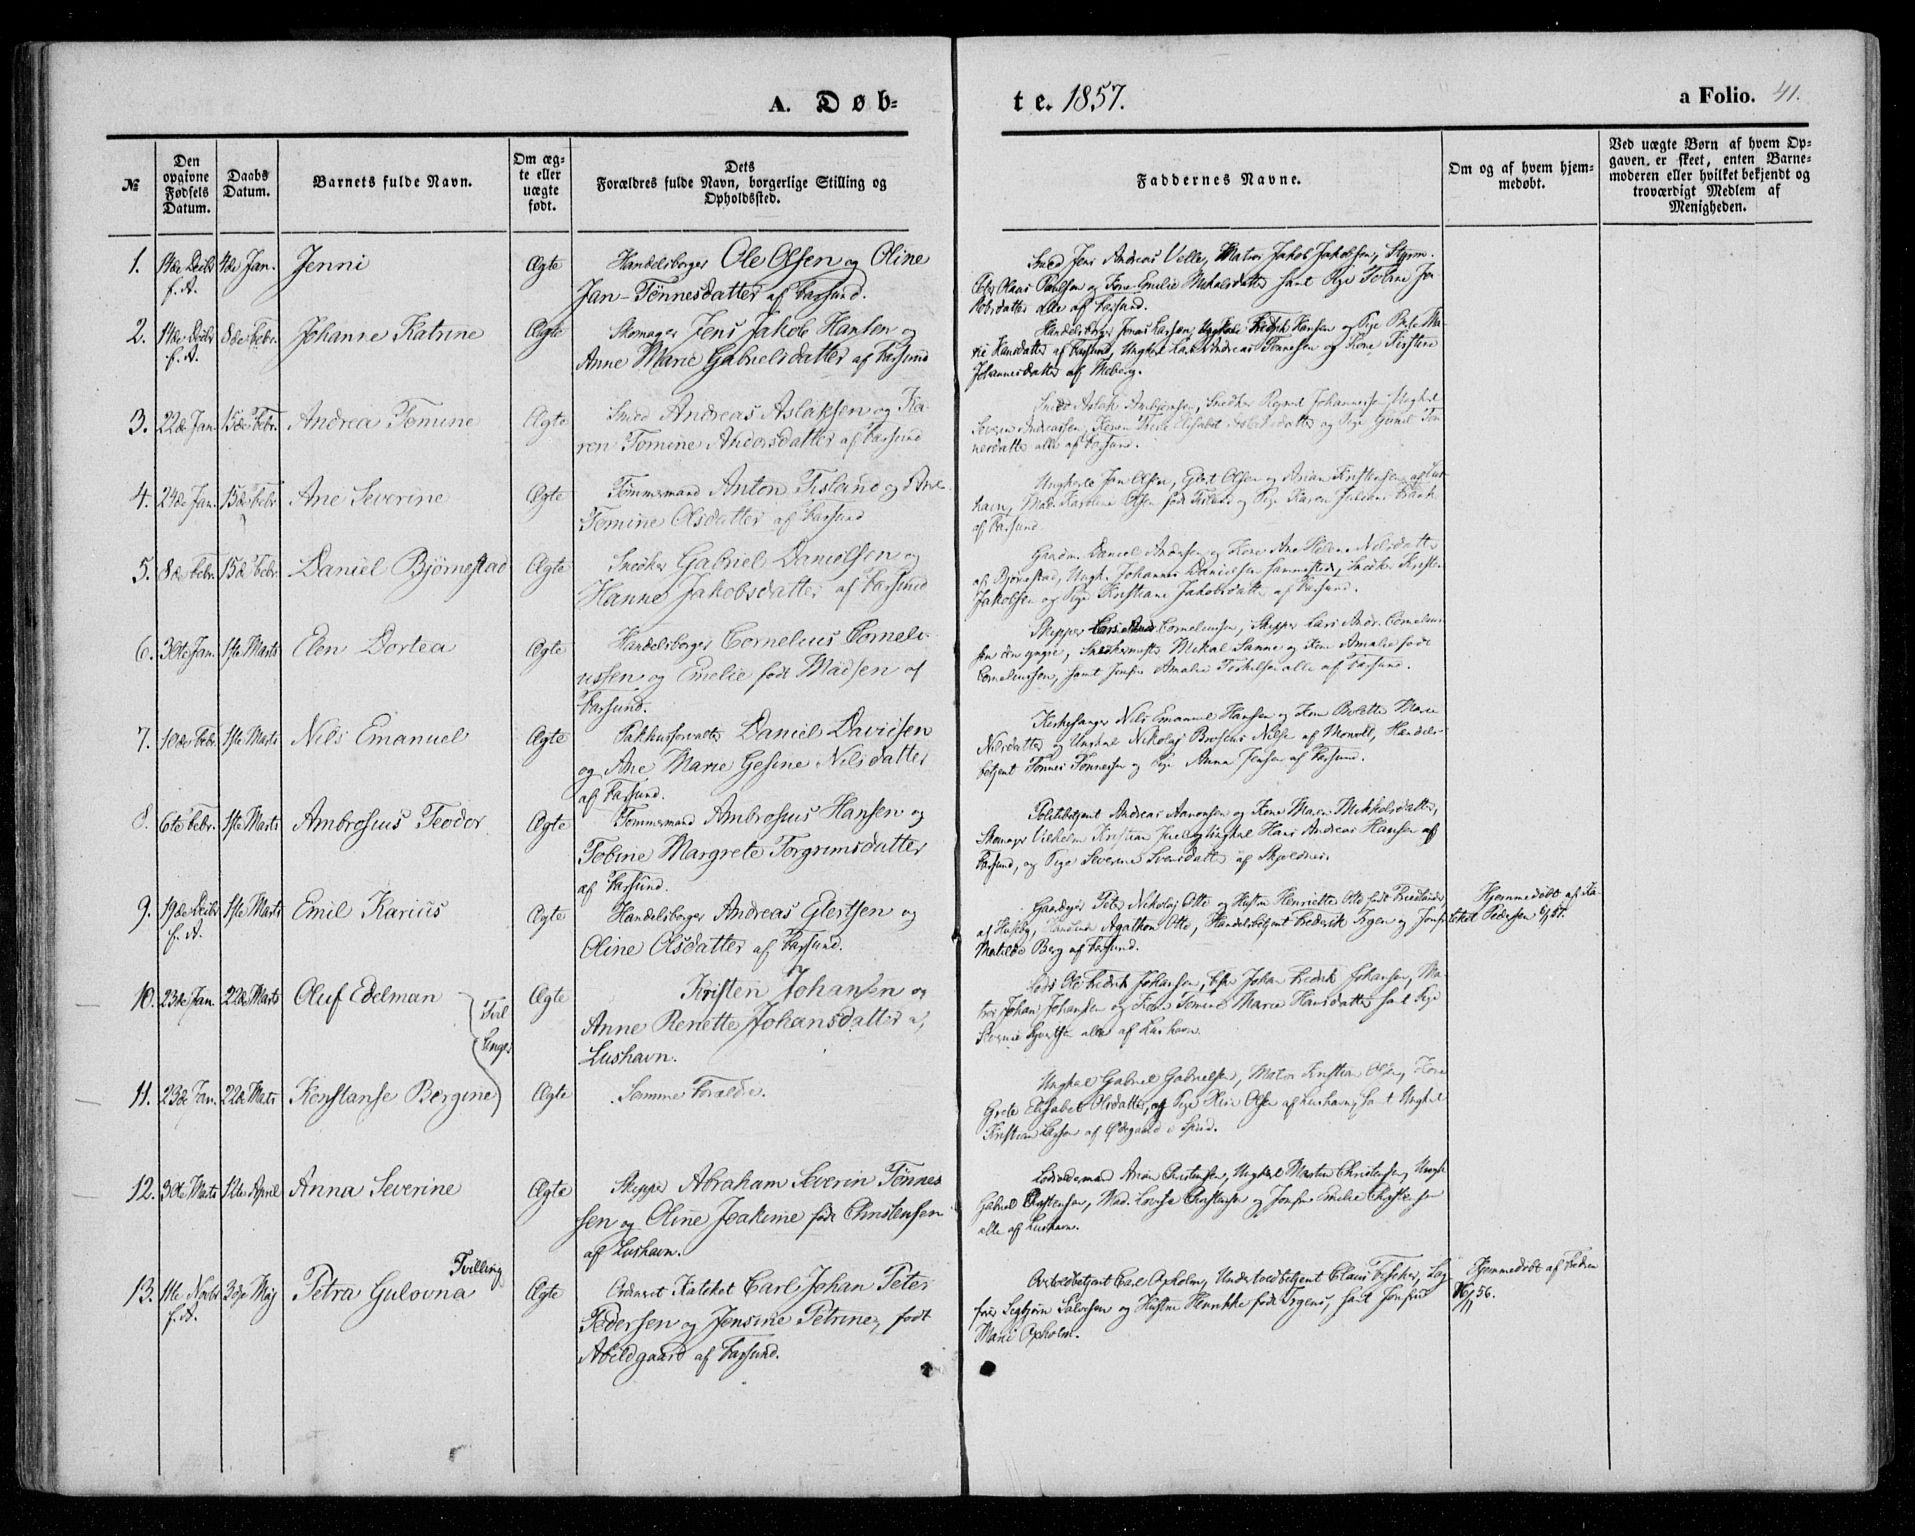 A. Døb-
te. 1857.
a Folio. 41.
№
Den opgivne Fødsels Datum.
Daabs Datum.
Barnets fulde Navn.
Om ægte eller uægte født.
Dets Forældres fulde Navn, borgerlige Stilling og Opholdssted.
Faddernes Navne.
Om og af hvem hjemmedøbt.
Ved uægte Børn af hvem Opgaven er skeet, enten Barnemoderen eller hvilket bekjendt og troværdigt Medlem af Menigheden.
1. 4de Jan. Jenni Ægte Handelsborger Ole Olsen og Oline
f. A. Jan-Tønnesdatter af Farsund.
Smed Jens Andreas Velle, Matros Jakob Jakobsen, Styrm.
Olaus Paulsen og Kone Emilie Mikalsdatter samt Pige Toline
alle af Farsund.
2. 8de Febr. Johanne Katrine Ægte Skomager Jens Jakob Hansen og
f. A. Anne Marie Gabrielsdatter af Farsund
Handelsborger Jonas Larsen, Ungkarl Fredrik Hansen og Pige
Hansdatter af Farsund, Ungkarl Andreas Tønnesen og Kone Kirstine
Johannesdatter af Moberg.
3. 22de Jan. 15de Febr. Andrea Tomine Ægte Smed Andreas Aslaksen og Ka-
ren Tomine Andersdatter af Farsund
Smed Aslak Ambjørnsen, Snedker Johannesen Ungkarl
Andreassen, Konen Elisabet og Pige
alle af Farsund.
4. 24de Jan. 15de Febr. Ane Severine Ægte Tømmermand Anton Tisland og Ane
Tomine Olsdatter af Farsund
Ungkarle Jon Olsen, Glert Olsen og Arian Kristensen af Lus-
havn, Mad. Karoline Olsen født og Pige Karen Juliane
af Farsund
5. 8de Febr. 15de Febr. Daniel Bjørnestad Ægte Snedker Gabriel Danielsen og
Hanne Jakobsdatter af Farsund
Gaardm. Daniel Andersen og Kone Ane Helene Nilsdatter
af Bjørnestad, Ungk. Johannes Danielsen sammesteds, Snedker
Jakobsen og Pige Kristiane Jakobsdatter af Farsund.
6. 30te Jan. 1ste Marts Elen Dortea Ægte Handelsborger Cornelius Corneli-
ussen og Emelie født Madsen af
Farsund.
Skipper Corneliussen, Skipper Lars Andr. Cornelius-
sen den yngre, Snedkermester Mikal Sanne og Kone Amalie født
Corneliussen, samt Jomfru Amalie Terkelsen alle af Farsund.
7. 10de Febr. 1ste Marts Nils Emanuel Ægte Pakhusforvalter Daniel Davidsen
og Ane Marie Gesine Nilsdatter
af Farsund.
Kirkesanger Nils Emanuel Hansen og Kone Bolette Marie
Nilsdatter og Ungkarl Nikolaj af Handels-
betjent Tønnes Tønnessen og Pige Anna Jensen af Farsund.
8. 6te Febr. 1ste Marts Ambrosius Teodor Ægte Tømmermand Ambrosius Hansen og
Tobine Margrete Torgrimsdatter
af Farsund.
Politibetjent Andreas Aanonsen og Kone Maren Mikkelsdatter,
Skomager Vilhelm Kristian og Ungkarl Hans Andreas Hansen af
Farsund, og Pige Severine Svensdatter af Skjoldnes.
9. 19de Decbr 1ste Marts Emil Karius Ægte Handelsborger Andreas Glertsen og
f. A. Oline Olsdatter af Farsund.
Peter Nikolaj Otto og Hustru Henriette Otto født Friedlander,
af Huseby, Agathon Otto, Handelsbetjent Frederik Irgens og Jomfru
Matilde Berg af Farsund.
Hjemmedøbt af Ka-
teket Pedersen
10. 23de Jan. 22de Marts Oluf Edelman Ægte Kristen Johansen og
Tvil
linger
Anne Renette Johansdatter af
Lushavn.
Lods Ole Fredrik Johansen, Johan Fredrik Johansen, Ma-
tros Johan Johansen og Kone Tomine Marie Hansdatter samt Pige
alle af Lushavn.
11. 23de Jan. 22de Marts Konstanse Bergine Ægte Samme Forældre.
Ungkarl Gabriel Gabrielsen, Matros Kristian Olsen, Kone
Grete Elisabet Olsdatter, og Pige Oline Olsen af Lushavn, samt Ungkarl
Kristian Larsen af Ødegaard i Spind.
12. 3die Marts 12te April Anna Severine Ægte Skipper Abraham Severin Tønnes
sen og Oline Joakime født Christensen
af Lushavn.
Lodsoldermand Arian Christensen, Ungkarl Martin Christensen, Ungk.
Gabriel Christensen, Mad. Lovise Christensen og Jomfru Emilie Christensen
alle af Lushavn.
Tvilling
13. 11te Novbr 3die Maj Petra Gulovna Ægte Ordineret Kateket Carl Johan Peter
f. A. Pedersen og Jensine Petrine, født
Abildgaard af Farsund.
Overtoldbetjent Carl Oxholm, Undertoldbetjent Claus Fischer, Sag-
fører Segbjørn Salvesen og Hustru Henrikke født Irgens, samt Jomfru
Marie Oxholm.
Hjemmedøbt af Faderen